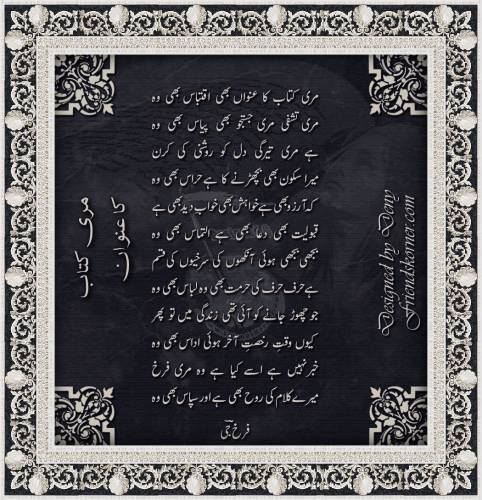 مری کتاب کا عنوان
مری کتاب کا عنواں بھی اقتباس بھی وہ
مری تشفی مری جستجو بھی پیاس بھی وہ
ہے مری تیرگی دل کو روشنی کی کرن
میرا سکون بھی بچھڑنے کا ہے حراس بھی وہ
کہ آرزو بھی ہے خواہش بھی خواب دید بھی ہے
قبولیت بھی دعا بھی ہے التماس بھی وہ
بجھی بجھی ہوئی آنکھوں کی سرخیوں کی قسم
ہے حرف حرف کی حرمت بھی وہ لباس بھی وہ
جو چھوڑ جانے کو آئی تھی زندگی میں تو پھر
کیوں وقتِ رخصتِ آخر ہوئی اداس بھی وہ
خبر نہیں ہے اسے کیا ہے وہ مری فرخ
میرے کلام کی روح بھی ہے اور سپاس بھی وہ
فرخ جی
Designed by Deny
Friendskorner.com